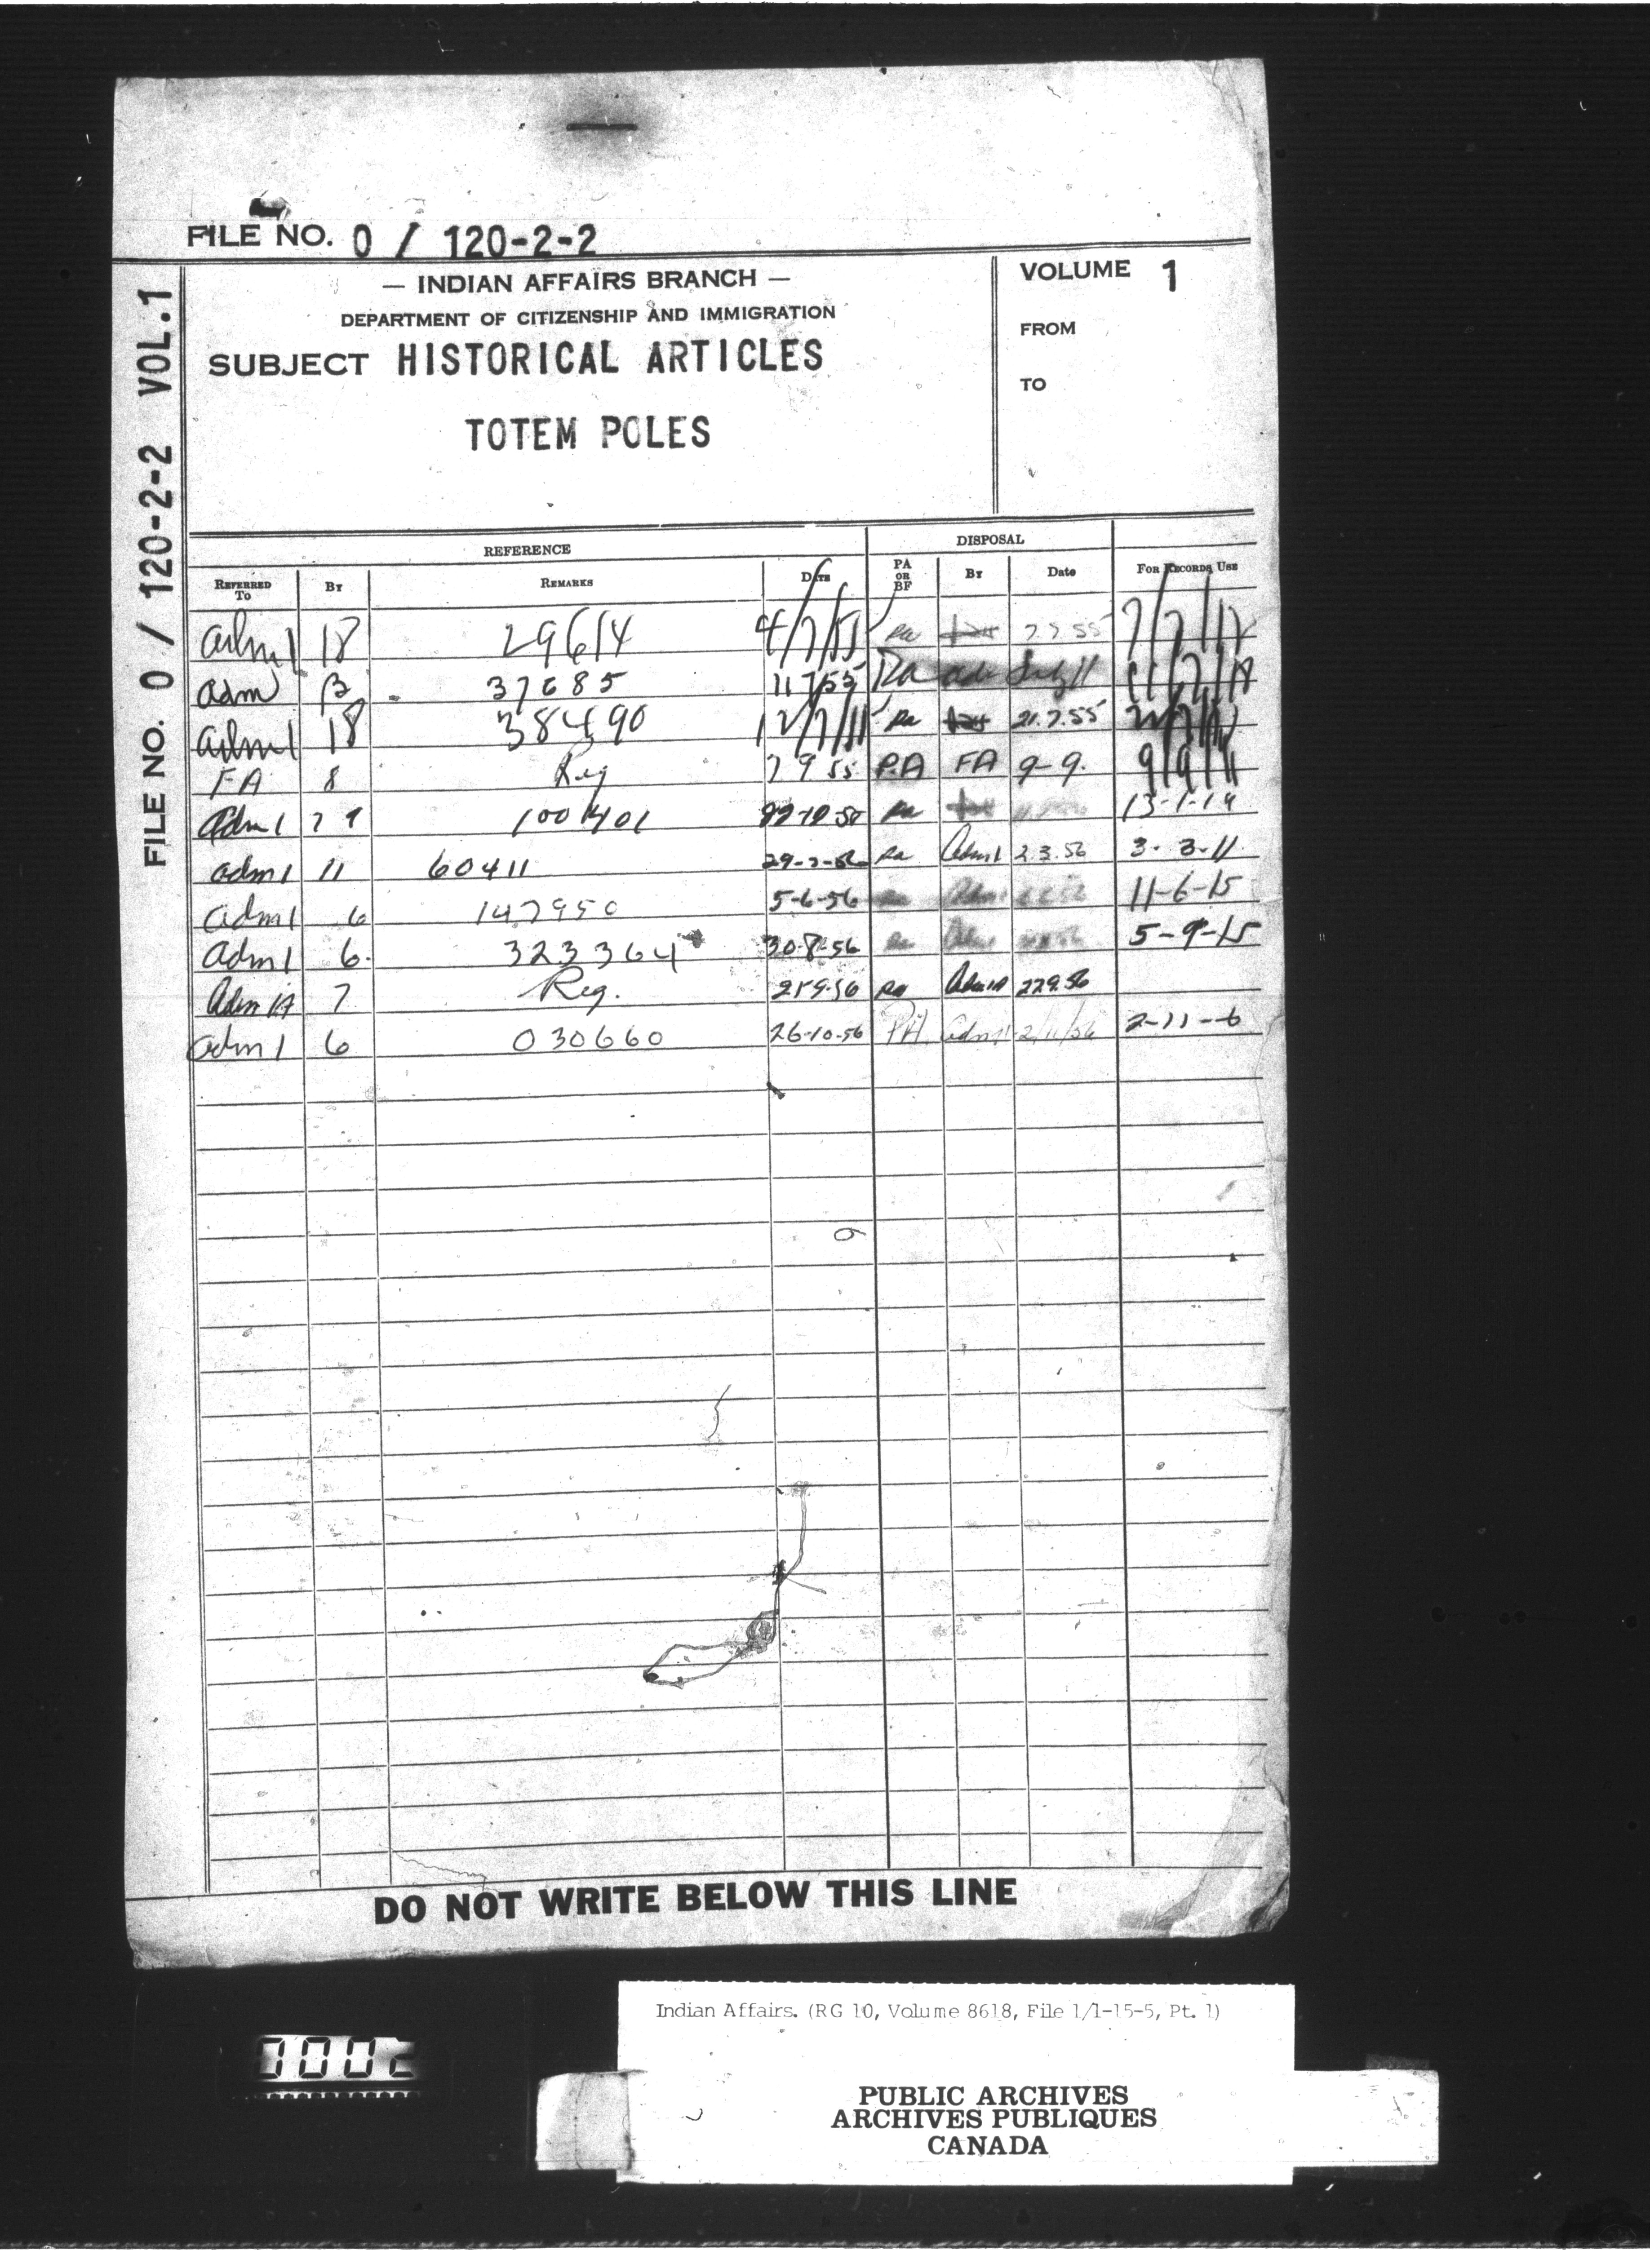 FILE NO. 0 / 120-2-2
— INDIAN AFFAIRS BRANCH —
DEPARTMENT OF CITIZENSHIP AND IMMIGRATION
SUBJECT HISTORICAL ARTICLES
TOTEM POLES
VOLUME 1
FROM
TO
FILE NO. 0 / 120-2-2 VOL.1
REFERENCE DISPOSAL
REFERRED TO BY REMARKS DATE PA OR BF BY DATE FOR RECORDS USE
Adm1 18 29614 4/7/55 Pa 7.7.55
Adm 37685 11/7/55 Pa adm July 11
Adm1 18 38490 Pa 21.7.55
FA 8 Reg 7 9 55 P.A FA 9-9. 9/9/11
Adm1 100401 Pa 13-1-19
adm1 11 60411 Pa Adm1 2.3.56 3-3-11
adm1 6 147950 5-6-56 11-6-15
adm1 6. 323364 30-8-56 5-9-15
Adm1A 7 Reg. 21 9.56 Pa Adm1A 22 9.56
adm1 6 030660 26-10-56 PA. adm1 2/11/56 2-11-6
DO NOT WRITE BELOW THIS LINE
Indian Affairs. (RG 10, Volume 8618, File 1/1-15-5, Pt. 1)
PUBLIC ARCHIVES
ARCHIVES PUBLIQUES
CANADA